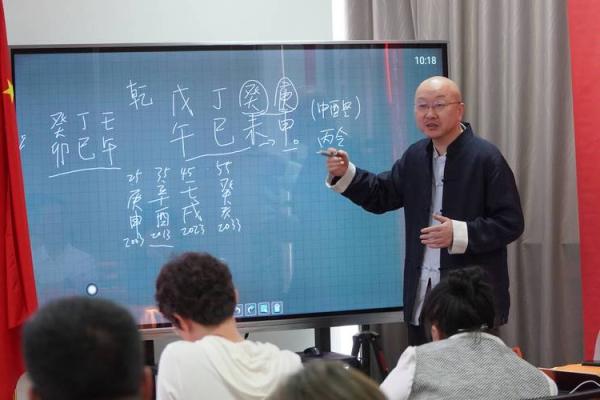 10:18
乾 戊 丁 癸 庚 (申酉空)
午 巳 未 申 丙令
癸 丁 壬
卯 巳 午
25 35 45 55
庚 辛 壬 癸
申 酉 戌 亥
2003 2013 2023 2033